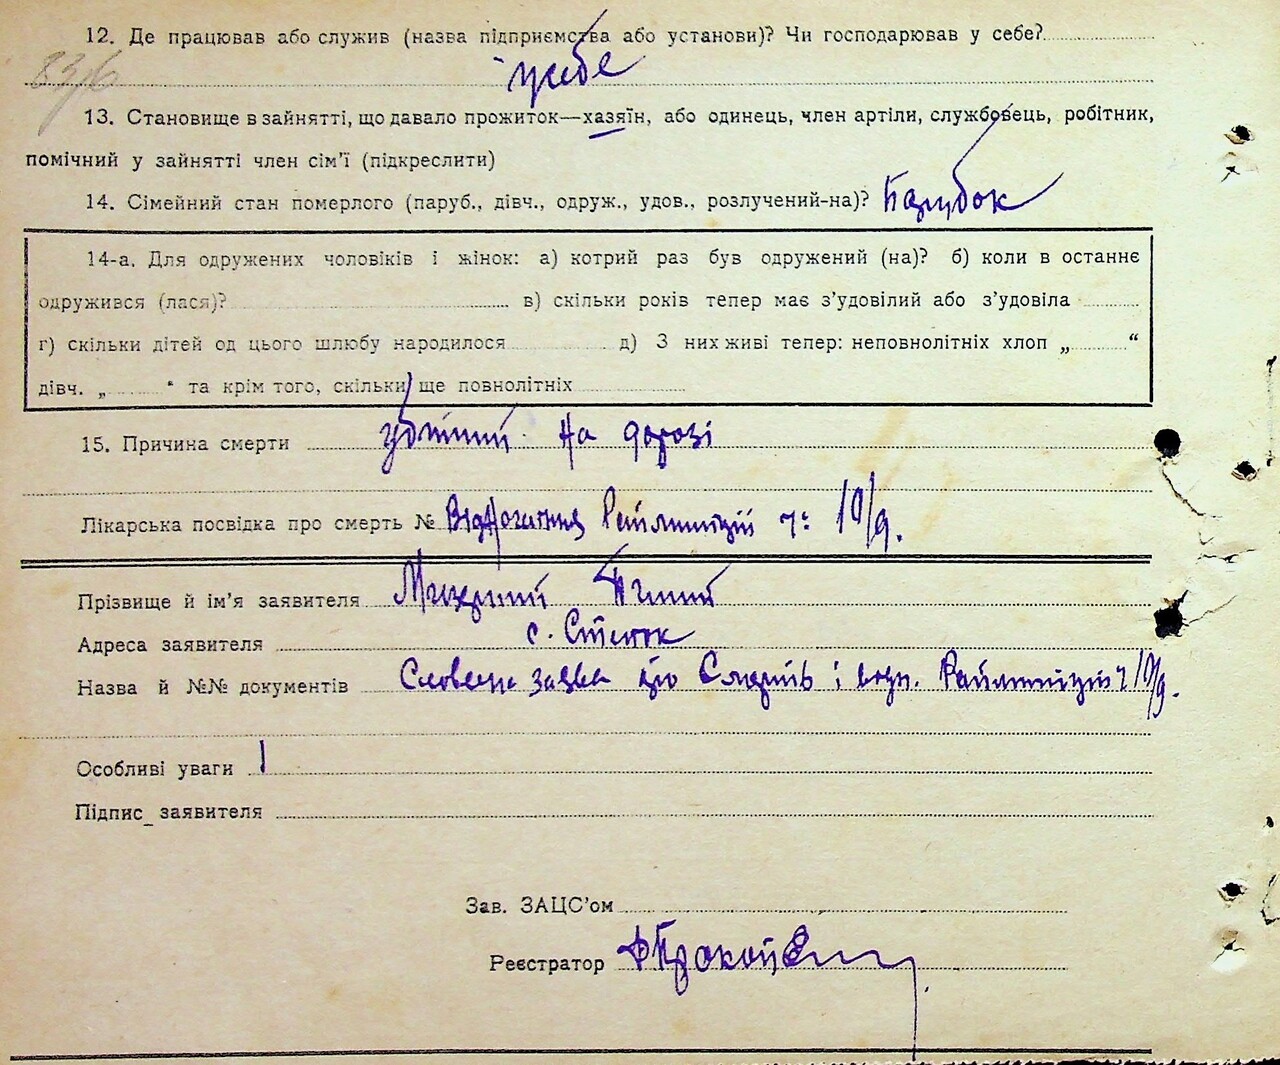 12. Де працював або служив (назва підприємства або установи)? Чи господарював у себе?
83/6 у себе
13. Становище в зайнятті, що давало прожиток—хазяїн, або одинець, член артіли, службовець, робітник,
помічний у зайнятті член сім'ї (підкреслити)
14. Сімейний стан померлого (паруб., дівч., одруж., удов., розлучений-на)? Парубок
14-а. Для одружених чоловіків і жінок: а) котрий раз був одружений (на)? б) коли в останнє
одружився (лася)? в) скільки років тепер має з'удовілий або з'удовіла
г) скільки дітей од цього шлюбу народилося д) З них живі тепер: неповнолітніх хлоп „ “
дівч. „ “ та крім того, скільки ще повнолітніх
15. Причина смерти убитий на дорозі
Лікарська посвідка про смерть № Райміліції 10/9.
Прізвище й ім'я заявителя
Адреса заявителя с.
Назва й №№ документів Словесна заява і Райміліції 10/9.
Особливі уваги
Підпис заявителя
Зав. ЗАЦС'ом
Реєстратор